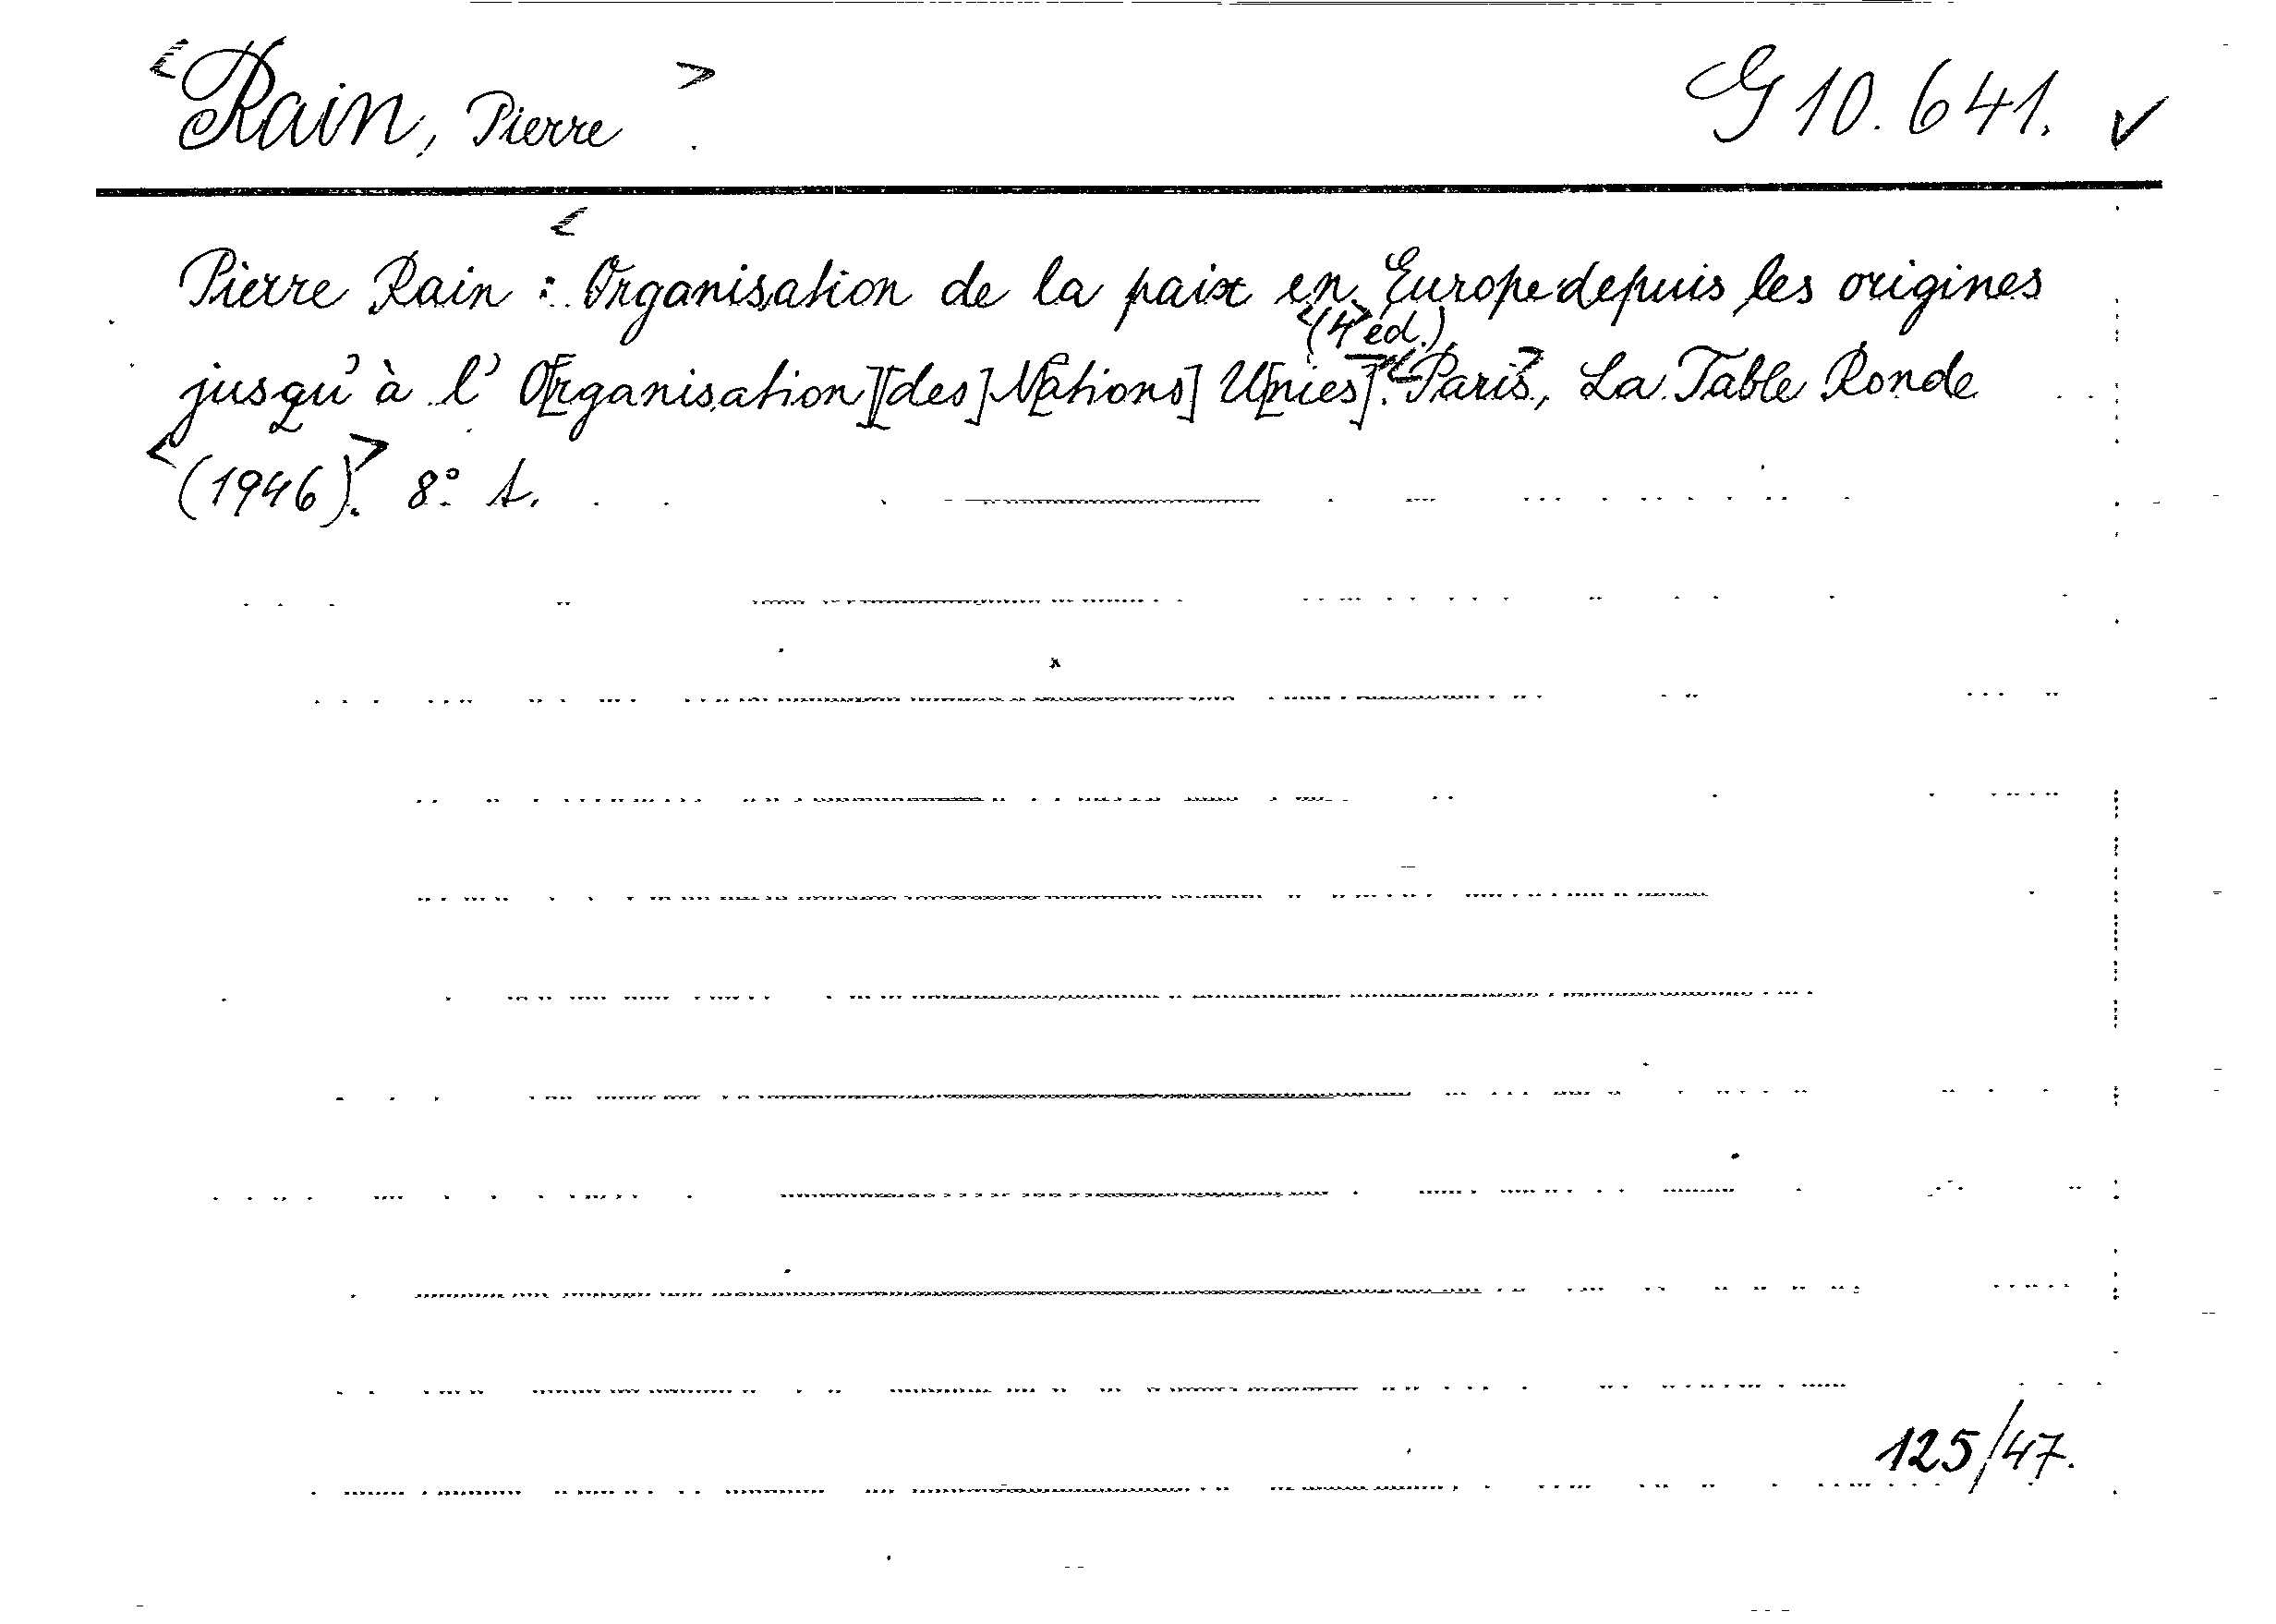 <Rain, Pierre>. G 10.641. ✓
Pierre Rain: <Organisation de la paix en Europe depuis les origines
<(4> éd.)
jusqu'à l' O[rganisation] [des] N[ations] U[nies]>. <Paris>, La Table Ronde
<(1946)>. 8° A.
125/47.